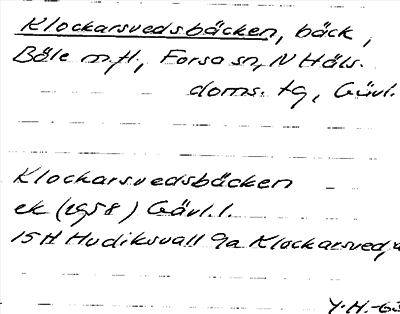 Klockarsvedsbäcken, bäck,
Böle m.fl., Forsa sn, N Häls.
doms. tg, Gävl.
Klockarsvedsbäcken
ek (1958) Gävl. l.
15H Hudiksvall 9a Klockarsved,
Y.H.-63